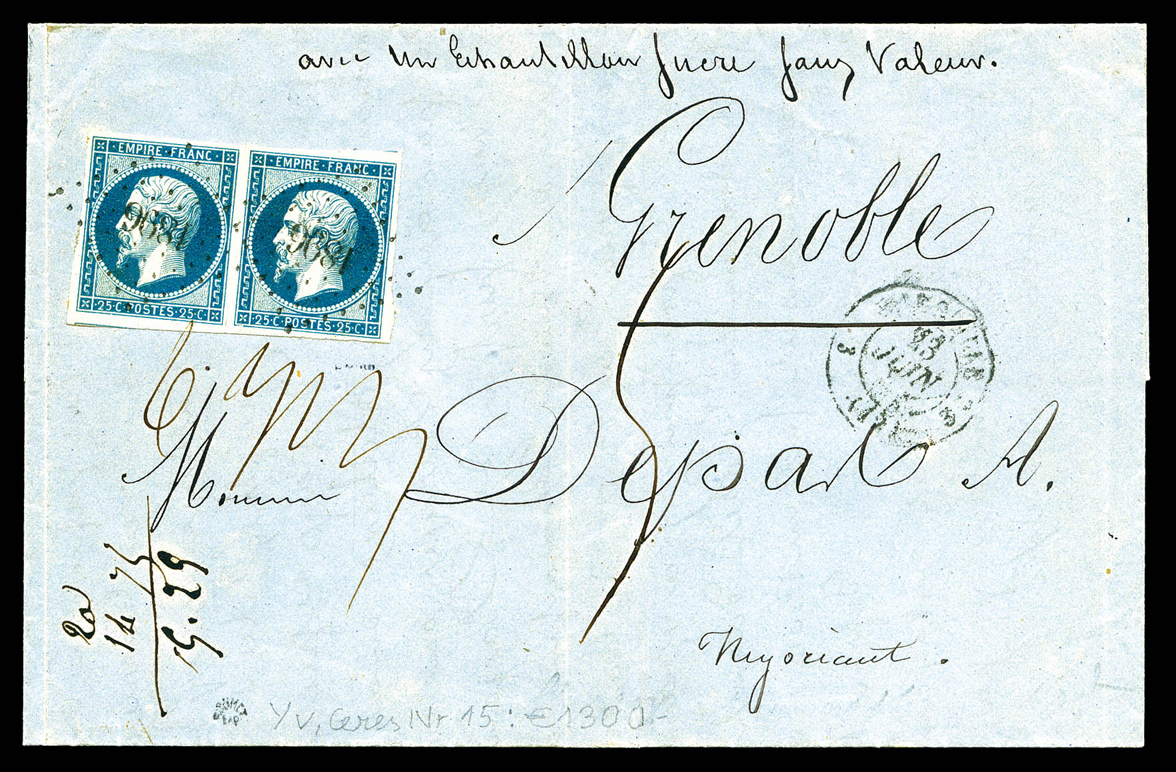 avec un Echantillon Sucre sans Valeur.
EMPIRE · FRANC · EMPIRE · FRANC ·
1896 1896
· 25 · C · POSTES · 25 · C · · 25 · C · POSTES · 25 · C ·
Grenoble
MARSEILLE
23
JUIN
Monsieur Depal A.
20
14 75
5.29
Négociant.
Yv, Ceres Nr 15: €1300.-